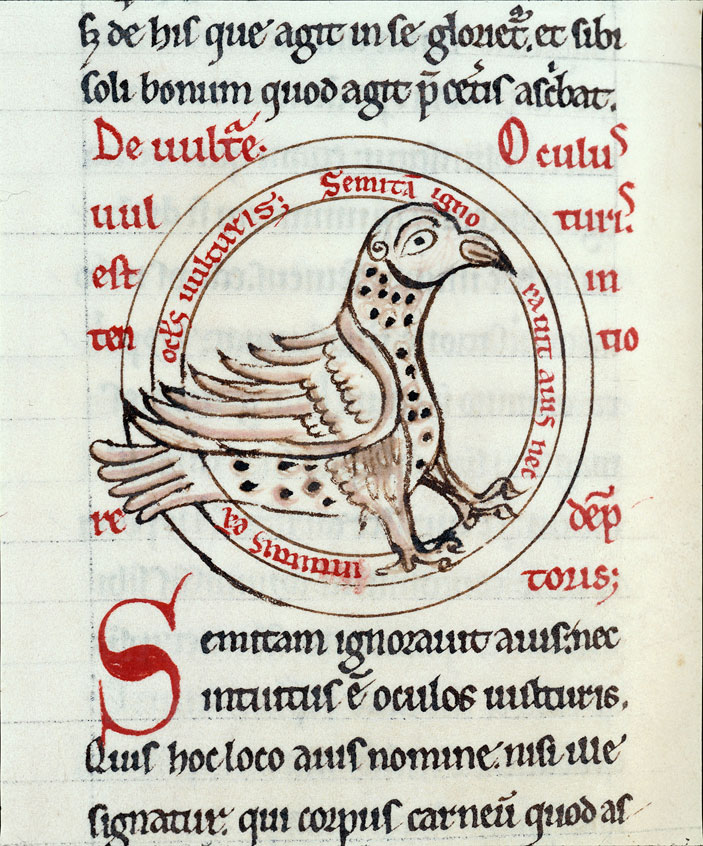 ꝫ de his que agit in se gloriet᷑. et sibi
soli bonum quod agit p̄ cet̄is asc̓bat.
De uult̄e.
Oculus
uul
turis.
est
in
ten
tio
re
dēp
toris;
Semitā ignorauit auis nec
intuitus ē oculos uulturis;
Semitam ignorauit auis; nec
intuitus ē oculos uulturis.
Quis hoc loco auis nomine. nisi ille
signatur. qui corpus carneū quod as